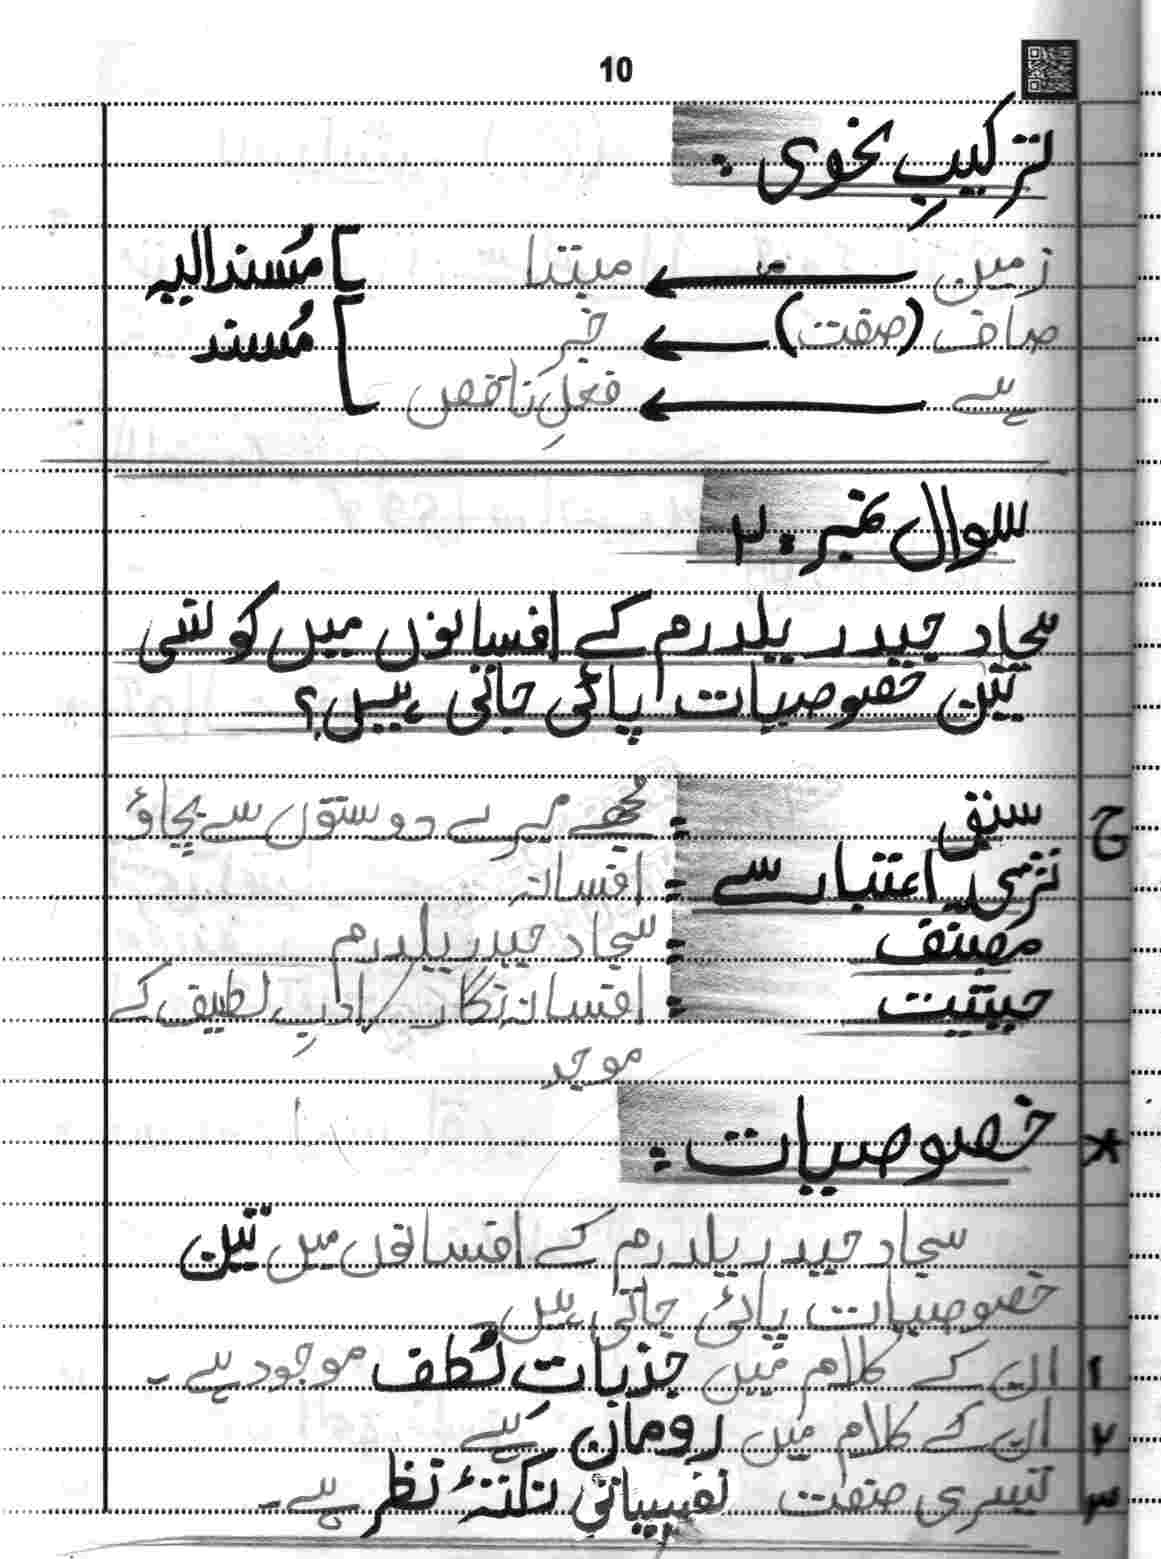 10
ترکیبِ نحوی :
زمین ← مبتدا ] مُسند الیہ
صاف (صفت) ← خبر ] مُسند
ہے ← فعلِ ناقص
سوال نمبر : ۲
سجاد حیدر یلدرم کے افسانوں میں کونسی
تین خصوصیات پائی جاتی ہیں؟
ج سبق : مُجھے میرے دوستوں سے بچاؤ
نثری اعتبار سے : افسانہ
مصنف : سجاد حیدر یلدرم
حیثیت : افسانہ نگار / ادبِ لطیف کے
موجد
* خصوصیات :
سجاد حیدر یلدرم کے افسانوں میں تین
خصوصیات پائی جاتی ہیں۔
۱ ان کے کلام میں جذبات لُطف موجود ہے۔
۲ ان کے کلام میں رومان ہے
۳ تیسری صفت نفسیاتی نکتۂ نظر ہے۔